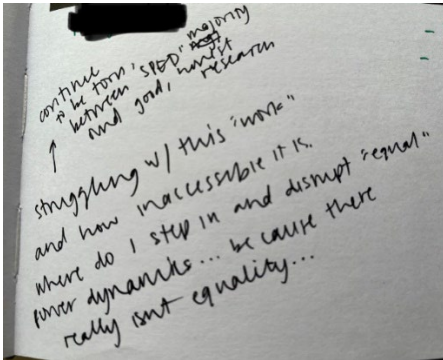 continue
to be torn
between "SPED" majority
and good, honest
research
struggling w/ this "work"
and how inaccessible it is.
where do I step in and disrupt "equal"
power dynamics... because there
really isnt equality...